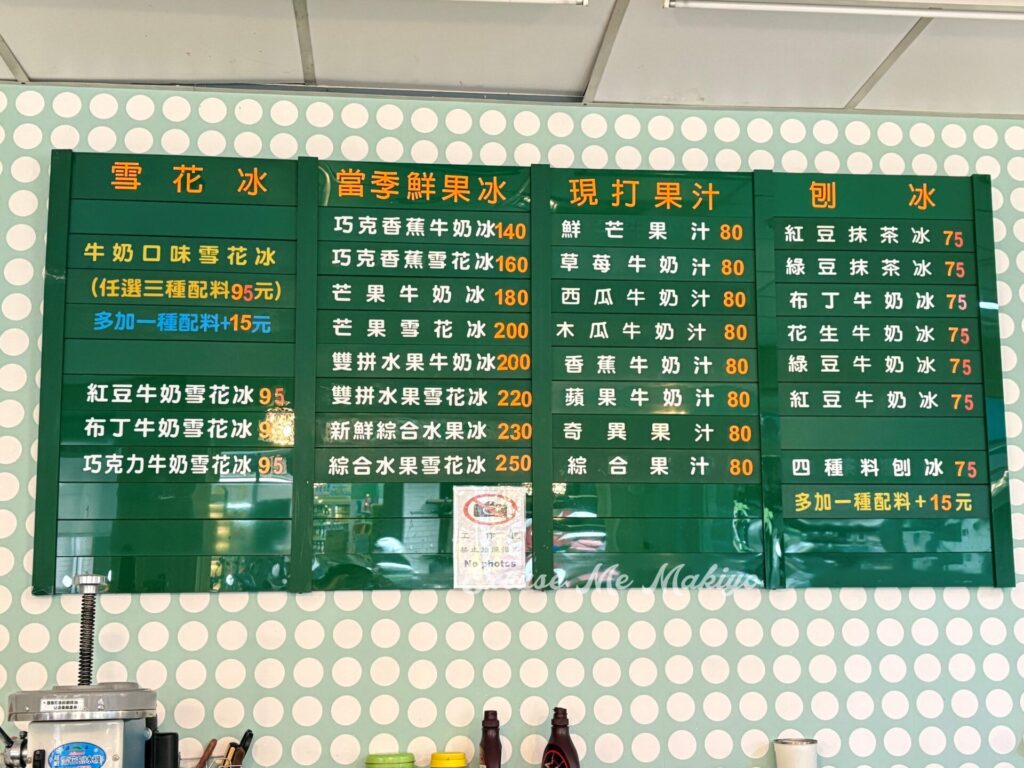 雪花冰
牛奶口味雪花冰
(任選三種配料95元)
多加一種配料+15元
紅豆牛奶雪花冰 95
布丁牛奶雪花冰 9
巧克力牛奶雪花冰 95
當季鮮果冰
巧克香蕉牛奶冰 140
巧克香蕉雪花冰 160
芒果牛奶冰 180
芒果雪花冰 200
雙拼水果牛奶冰 200
雙拼水果雪花冰 220
新鮮綜合水果冰 230
綜合水果雪花冰 250
現打果汁
鮮芒果汁 80
草莓牛奶汁 80
西瓜牛奶汁 80
木瓜牛奶汁 80
香蕉牛奶汁 80
蘋果牛奶汁 80
奇異果汁 80
綜合果汁 80
刨冰
紅豆抹茶冰 75
綠豆抹茶冰 75
布丁牛奶冰 75
花生牛奶冰 75
綠豆牛奶冰 75
紅豆牛奶冰 75
四種料刨冰 75
多加一種配料+15元
No photos
Me Makiyo